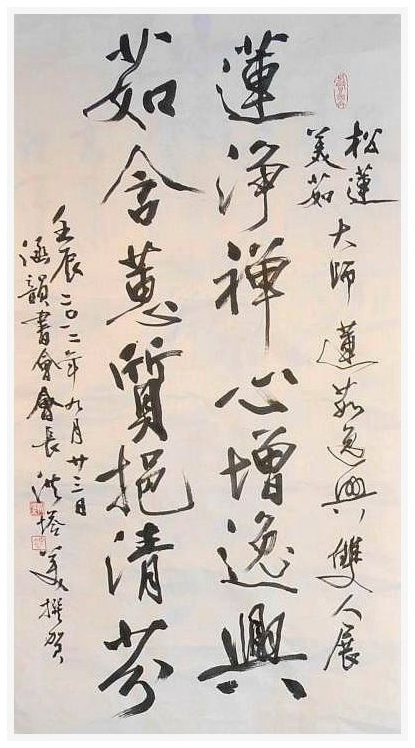 松蓮
美茹
大師蓮茹逸興雙人展
蓮淨禪心增逸興
茹含蕙質挹清芬
壬辰二〇一二年九月廿三日
涵韻書會會長洪塔美撰賀